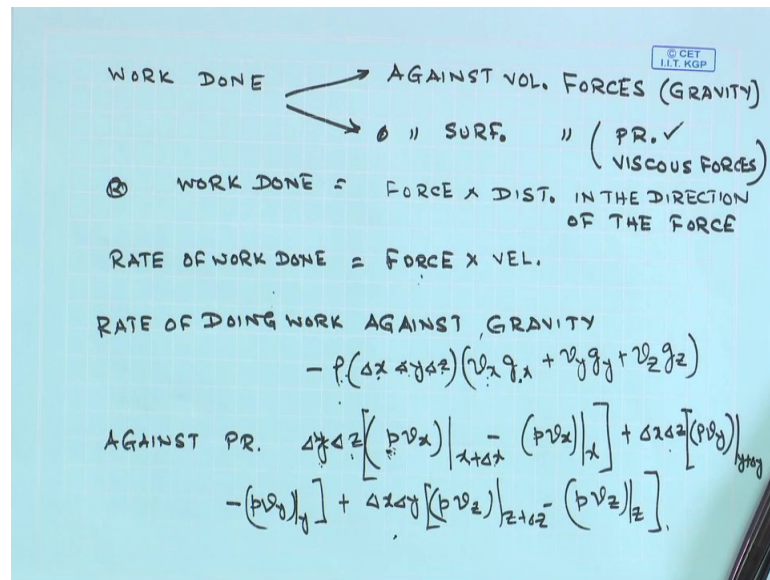 © CET
I.I.T. KGP
WORK DONE
AGAINST VOL. FORCES (GRAVITY)
" SURF. " ( PR. ✓
VISCOUS FORCES)
WORK DONE = FORCE × DIST. IN THE DIRECTION
OF THE FORCE
RATE OF WORK DONE = FORCE × VEL.
RATE OF DOING WORK AGAINST GRAVITY
- ρ(Δx Δy Δz)(v_x g_x + v_y g_y + v_z g_z)
AGAINST PR. Δy Δz[(pv_x)|_{x+Δx} - (pv_x)|_x] + ΔxΔz[(pv_y)|_{y+Δy}
-(pv_y)|_y] + ΔxΔy[(pv_z)|_{z+Δz} - (pv_z)|_z].